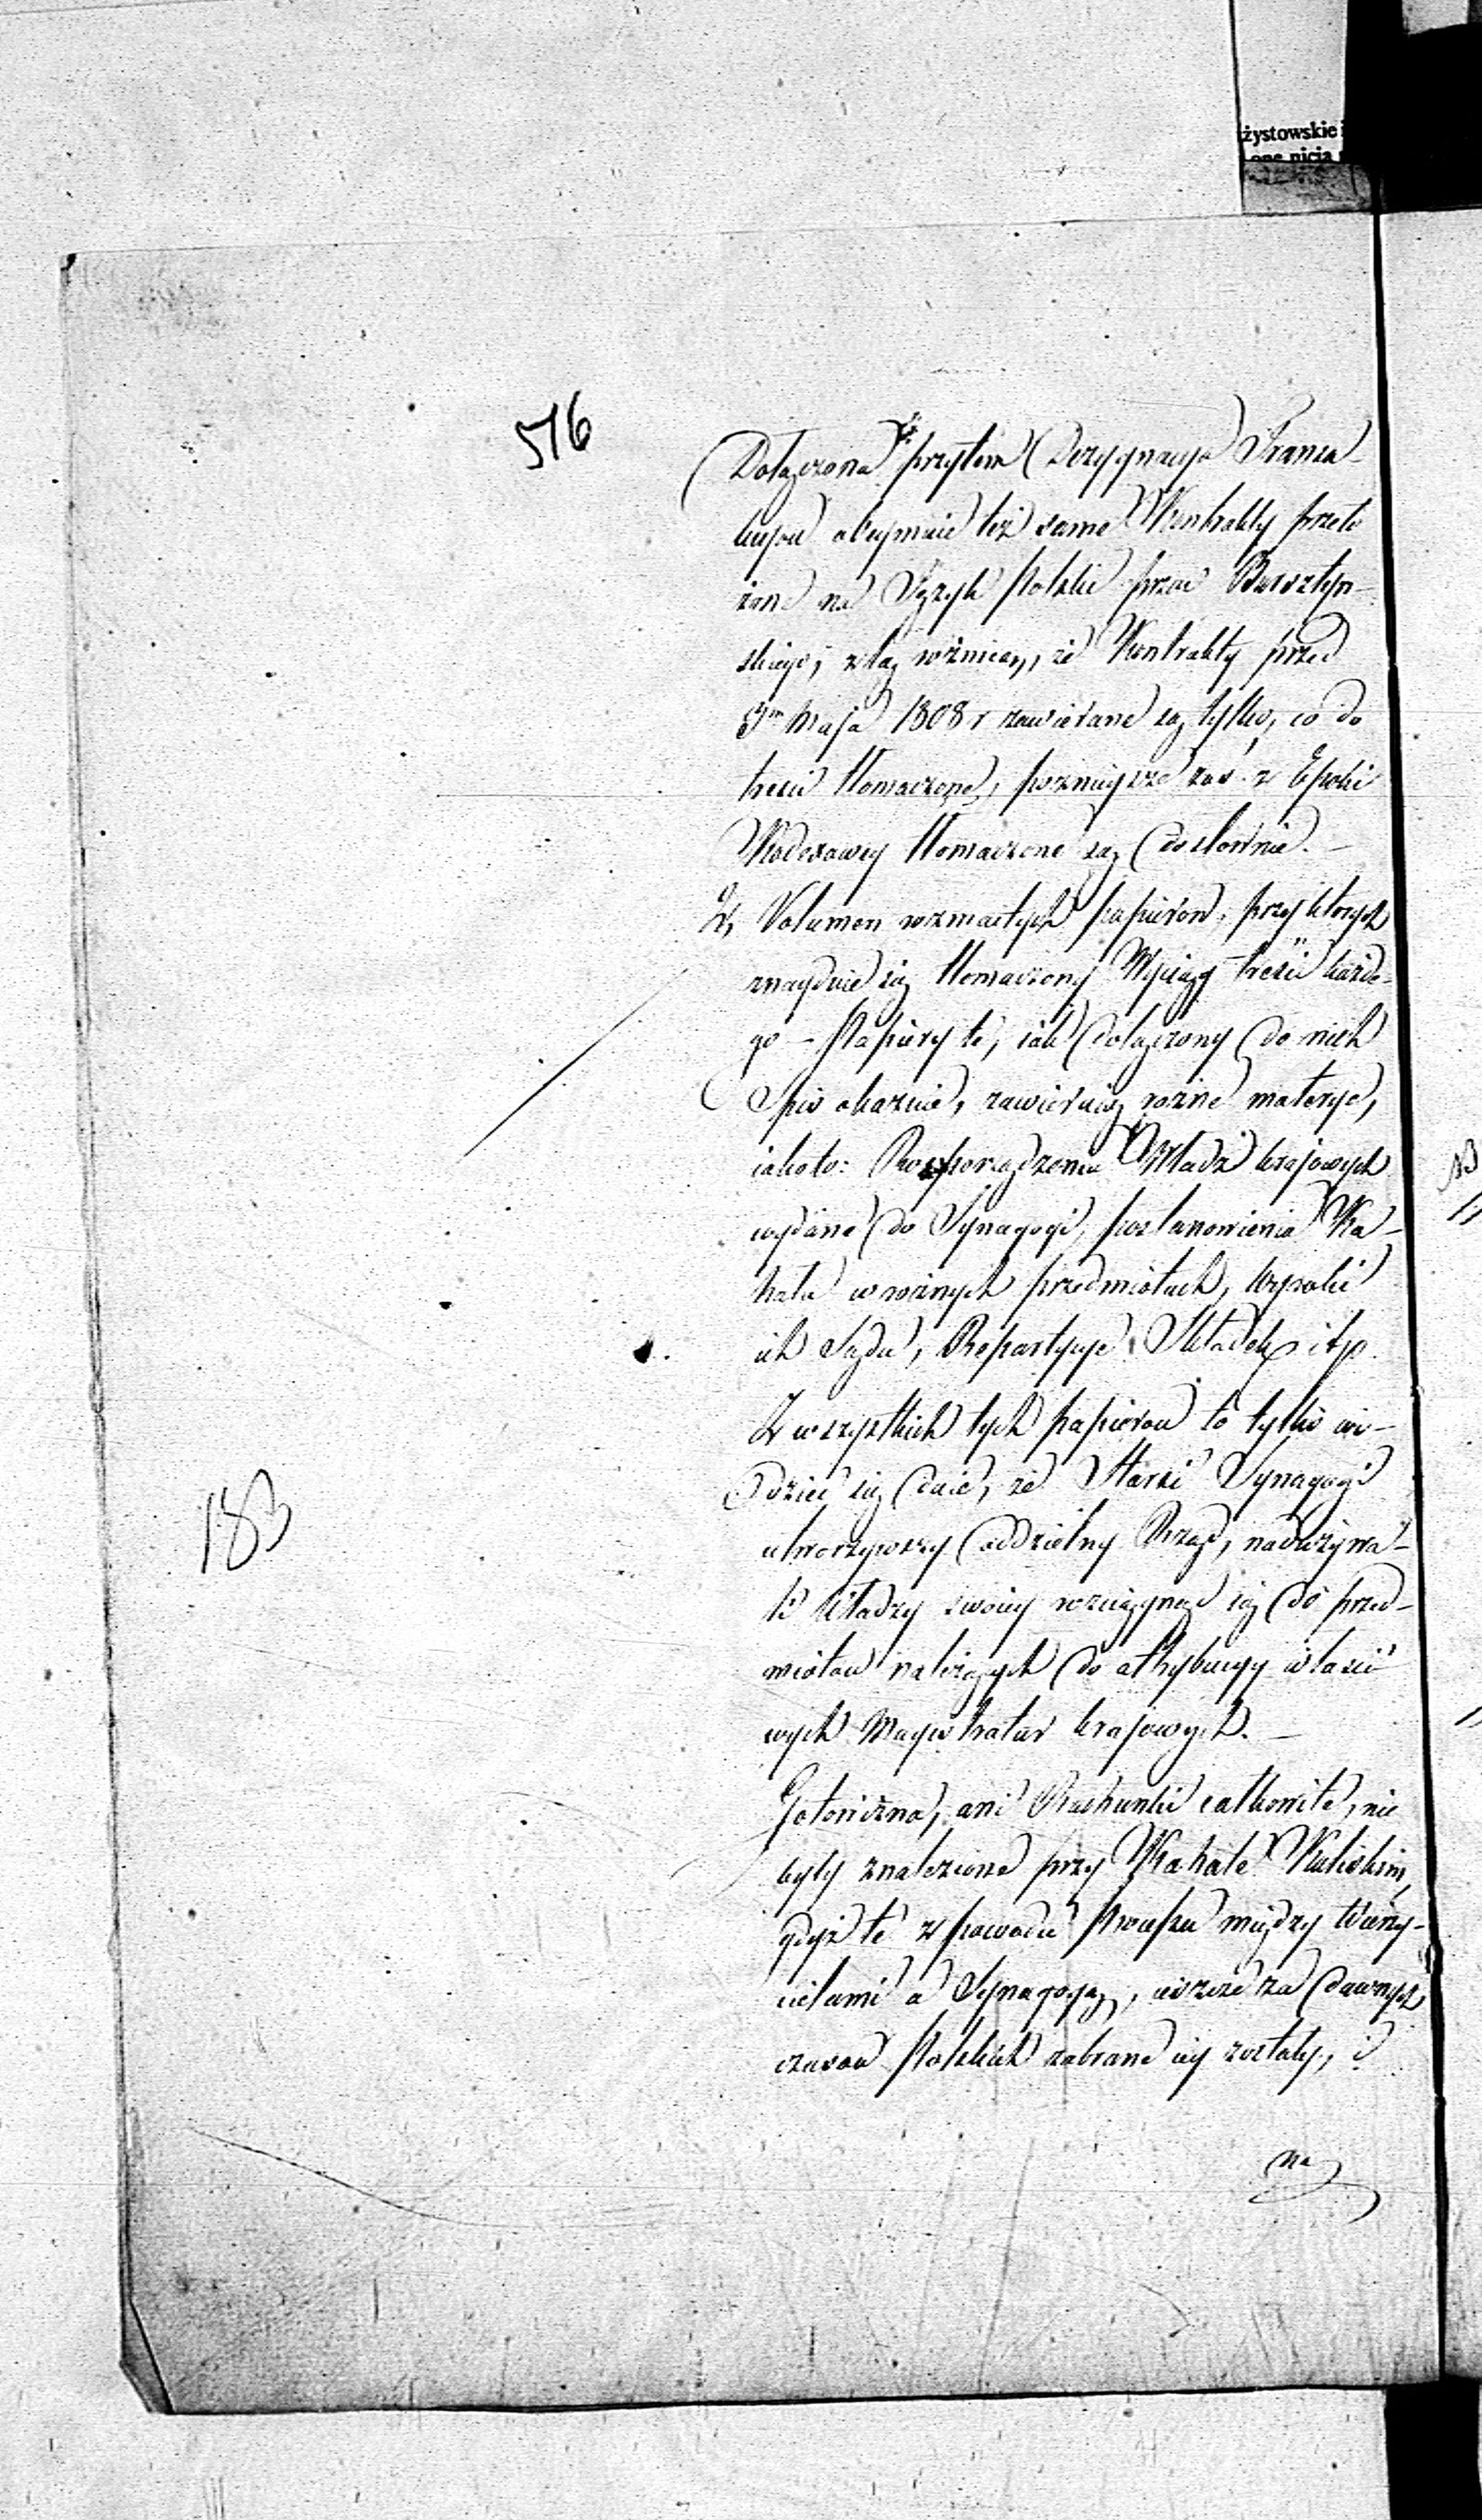 żystowskie i
one nicią
576
Dołączona przytem Dezygnacya Transa-
kcyow obeymuie też same Kontrakty przeło
żone na Język Polski przez Bursztyn-
skiego, z tą różnicą, że Kontrakty przed
1m Maja 1808 r zawierane są tylko, co do
treści tłomaczone, poznieysze zaś z Epoki
Kodexowey tłomaczone są dosłownie. —
2, Volumen rozmaitych papierow, przy ktorych
znayduie się tłomaczony Wyciąg treści każde-
go — Papiery te, iak dołączony do nich
Spis okazuie, zawieraią rożne materye,
iakoto: Rozporządzenia Władz kraiowych
wydane do Synagogi, postanowienia Ka-
hału w rożnych przedmiotach, Wyroki
ich Sądu, Repartycye Składek itp.
Z wszystkich tych papierow to tylko wi-
dzieć się daie, że Starsi Synagogi
utworzywszy oddzielny Rząd, nadużywa-
li Władzy swoiey rozciągnąć się do przed-
miotow należących do attrybucyy właści
wych Magistratur kraiowych. —
Gotowizna, ani Rachunki całkowite, nie
były znalezione przy Kahale Kaliskim,
gdyż te z powodu Processu między Wierzy-
cielami a Synagogą, ieszcze za dawnych
czasow Polskich zabrane iey zostały, i
na
183